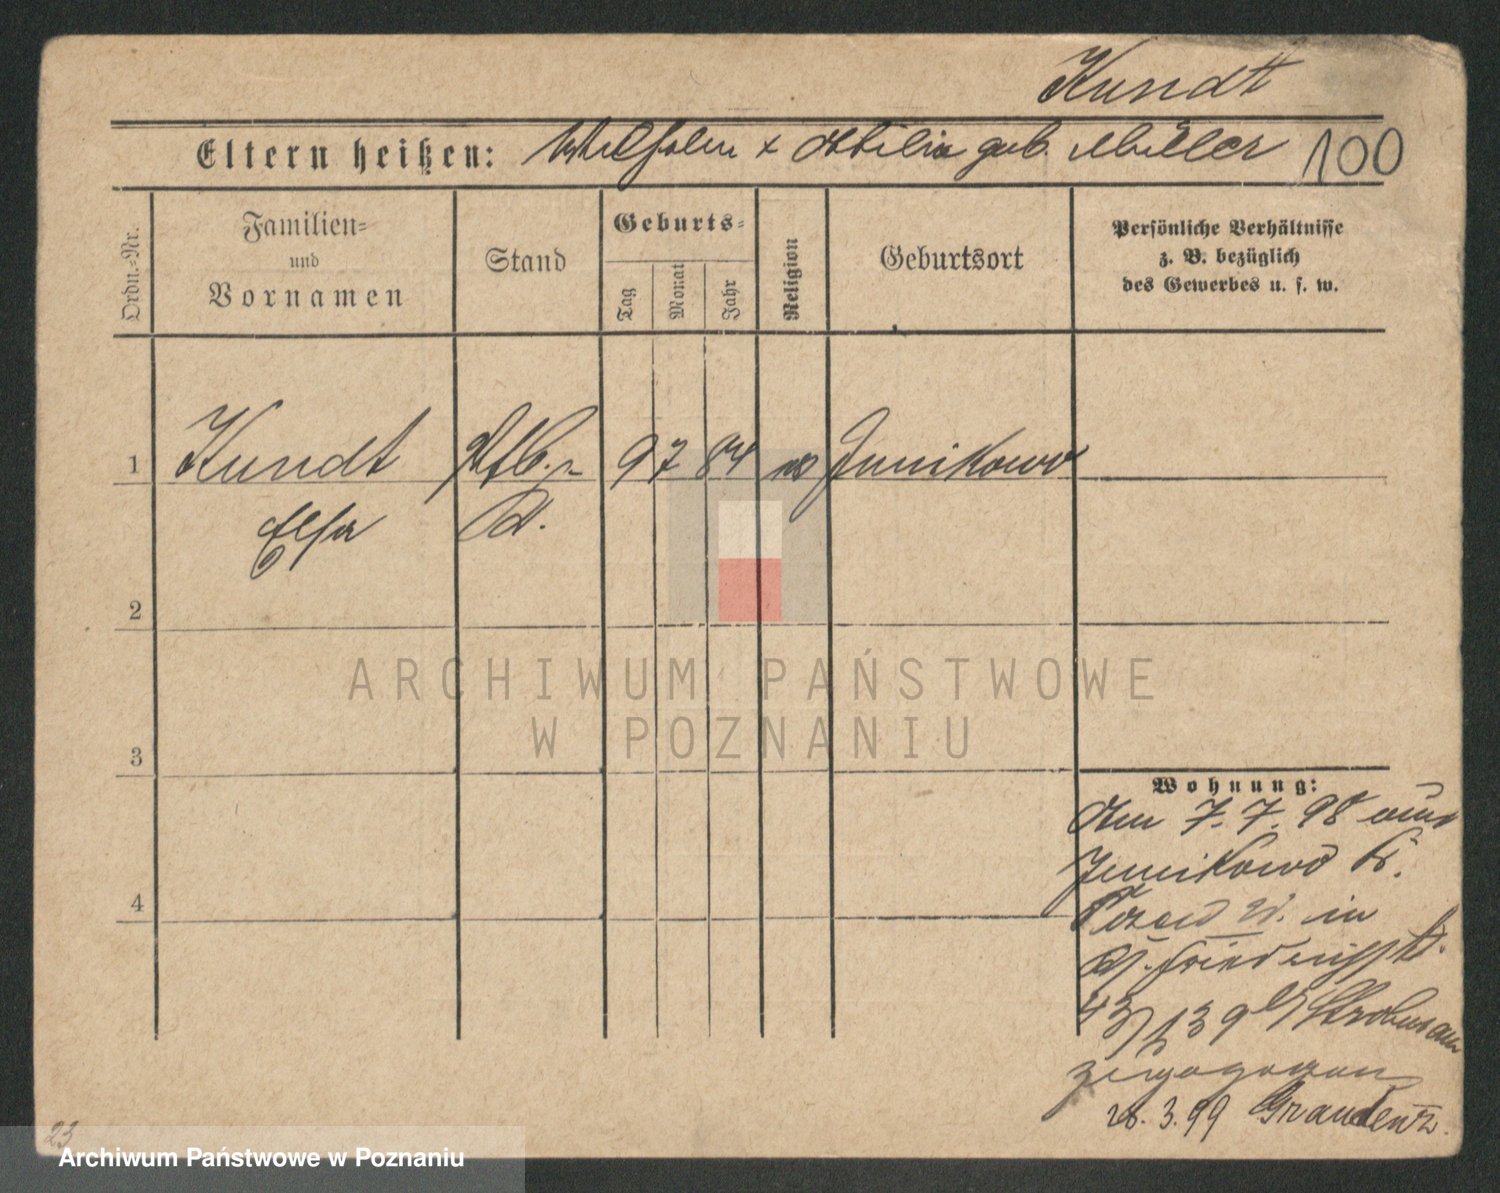 Kundt
Eltern heißen: Wilhelm + Ottilie geb. Müller 100
Ordn.-Nr.
Familien-
und
Vornamen
Stand
Geburts-
Tag
Monat
Jahr
Religion
Geburtsort
Persönliche Verhältnisse
z. B. bezüglich
des Gewerbes u. s. w.
1 Kundt 9 7 84 Junikowo
Elsa
2
3
4
Wohnung:
Am 7. 7. 98 aus
Junikowo Kr.
Posen W. in
43/
zugezogen
28. 3. 99 Graudenz.
23
ARCHIWUM PAŃSTWOWE
W POZNANIU
Archiwum Państwowe w Poznaniu